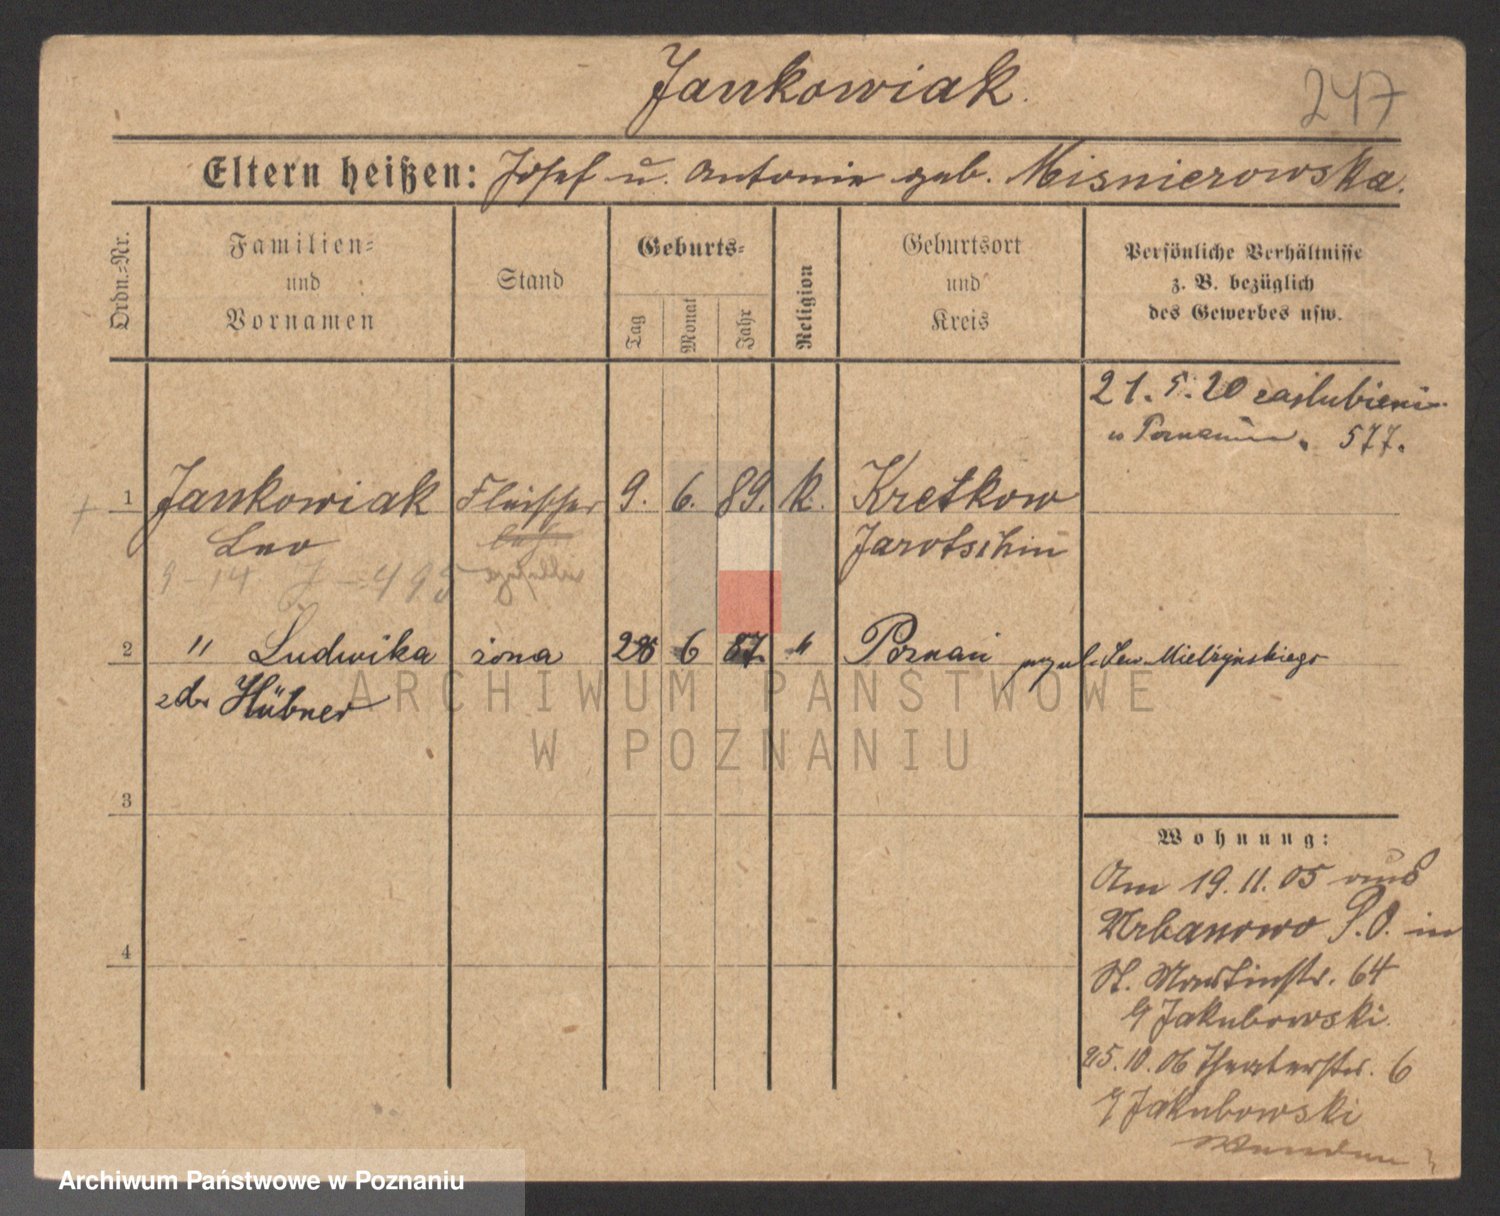 Jankowiak.
247
Eltern heißen: Josef u. Antonie geb. Misnierowska.
Ordn.=Nr.
Familien=
und
Vornamen
Stand
Geburts=
Tag
Monat
Jahr
Religion
Geburtsort
und
Kreis
Persönliche Verhältnisse
z. B. bezüglich
des Gewerbes usw.
21. 5. 20 zaslubieni
w Poznaniu 577.
1 Jankowiak Fleischer 9. 6. 89. k. Kretkow
Leo Jarotschin
9-14 J-495
2 " Ludwika żona 28 6 87. " Poznań Mielżyńskiego
zd. Hübner
3
4
Wohnung:
Am 19. 11. 05 aus
Urbanowo P.O. in
St. Martinstr. 64
Jakubowski
25. 10. 06 Theaterstr. 6
Jakubowski
ARCHIWUM PAŃSTWOWE
W POZNANIU
Archiwum Państwowe w Poznaniu